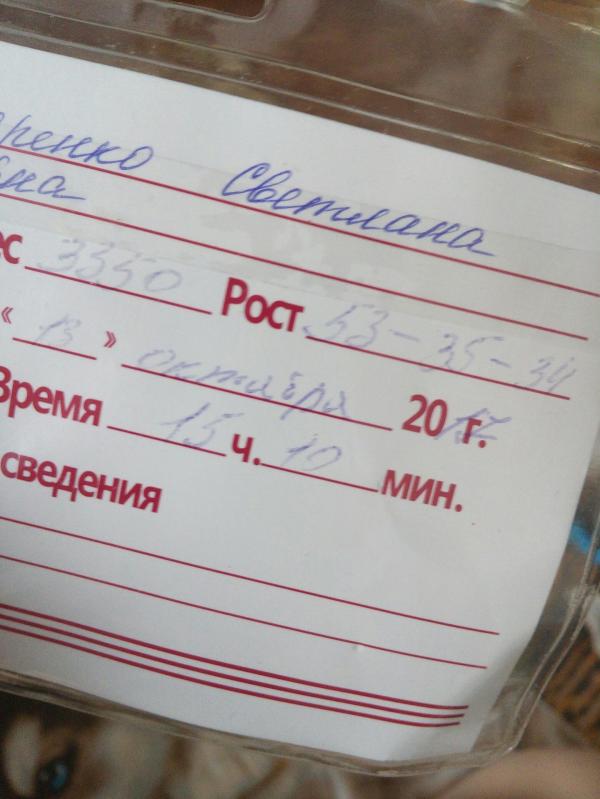 аренко Светлана
вна
ес 3350 Рост 53-35-34
« 13 » октября 2017 г.
Время 15 ч. 10 мин.
сведения